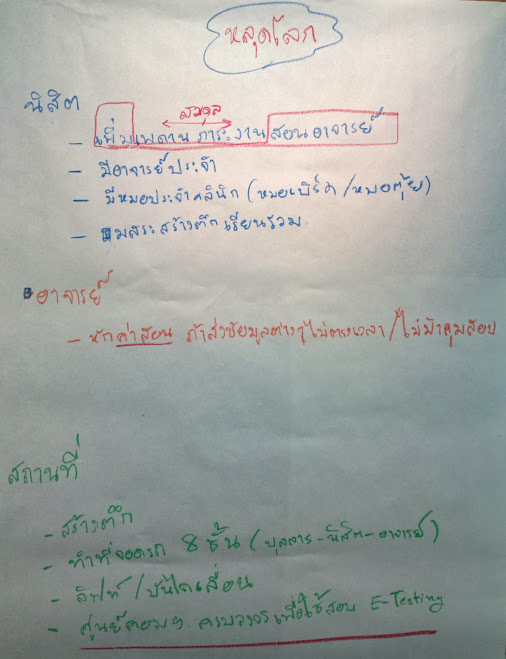 หลุดโลก
นิสิต
สมดุล
- เพิ่มเพดาน ภาระงานสอนอาจารย์
- มีอาจารย์ประจำ
- มีหมอประจำคลินิก (หมอเบิร์ด / หมอตุ้ย)
- ถมสระสร้างตึกเรียนรวม
อาจารย์
- หักค่าสอน ถ้าส่งข้อมูลต่างๆไม่ตรงเวลา / ไม่มาคุมสอบ
สถานที่
- สร้างตึก
- ทำที่จอดรถ 8 ชั้น (บุคลากร - นิสิต - อาจารย์)
- ลิฟท์ / บันไดเลื่อน
- ศูนย์คอมฯ ครบวงจรเพื่อใช้สอบ E-Testing